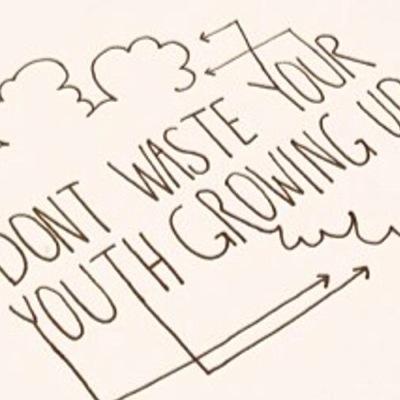 DONT WASTE YOUR
YOUTH GROWING UP